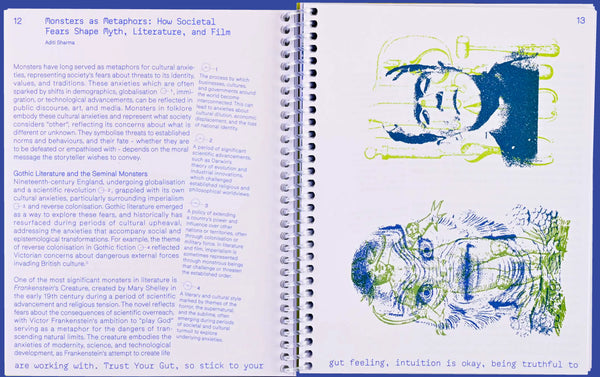 12
Monsters as Metaphors: How Societal
Fears Shape Myth, Literature, and Film
Aditi Sharma
Monsters have long served as metaphors for cultural anxie-
ties, representing society's fears about threats to its identity,
values, and traditions. These anxieties which are often
sparked by shifts in demographics, globalisation 1, immi-
gration, or technological advancements, can be reflected in
public discourse, art, and media. Monsters in folklore
embody these cultural anxieties and represent what society
considers "other", reflecting its concerns about what is
different or unknown. They symbolise threats to established
norms and behaviours, and their fate - whether they are
to be defeated or empathised with - depends on the moral
message the storyteller wishes to convey.
Gothic Literature and the Seminal Monsters
Nineteenth-century England, undergoing globalisation
and a scientific revolution 2, grappled with its own
cultural anxieties, particularly surrounding imperialism
3 and reverse colonisation. Gothic literature emerged
as a way to explore these fears, and historically has
resurfaced during periods of cultural upheaval,
addressing the anxieties that accompany social and
epistemological transformations. For example, the theme
of reverse colonisation in Gothic fiction 4 reflected
Victorian concerns about dangerous external forces
invading British culture.
One of the most significant monsters in literature is
Frankenstein's Creature, created by Mary Shelley in
the early 19th century during a period of scientific
advancement and religious tension. The novel reflects
fears about the consequences of scientific overreach,
with Victor Frankenstein's ambition to "play God"
serving as a metaphor for the dangers of tran-
scending natural limits. The creature embodies the
anxieties of modernity, science, and technological
development, as Frankenstein's attempt to create life
1
The process by which
businesses, cultures,
and governments around
the world become
interconnected. This can
lead to anxieties about
cultural dilution, economic
displacement, and the loss
of national identity.
2
A period of significant
scientific advancements,
such as Darwin's
theory of evolution and
industrial innovations,
which challenged
established religious and
philosophical worldviews.
3
A policy of extending
a country's power and
influence over other
nations or territories, often
through colonisation or
military force. In literature
and film, imperialism is
sometimes represented
through monstrous beings
that challenge or threaten
the established order.
4
A literary and cultural style
marked by themes of the
macabre, the supernatural,
and the sublime, often
emerging during periods
of societal and cultural
turmoil to explore
underlying anxieties.
are working with. Trust Your Gut, so stick to your
13
gut feeling, intuition is okay, being truthful to